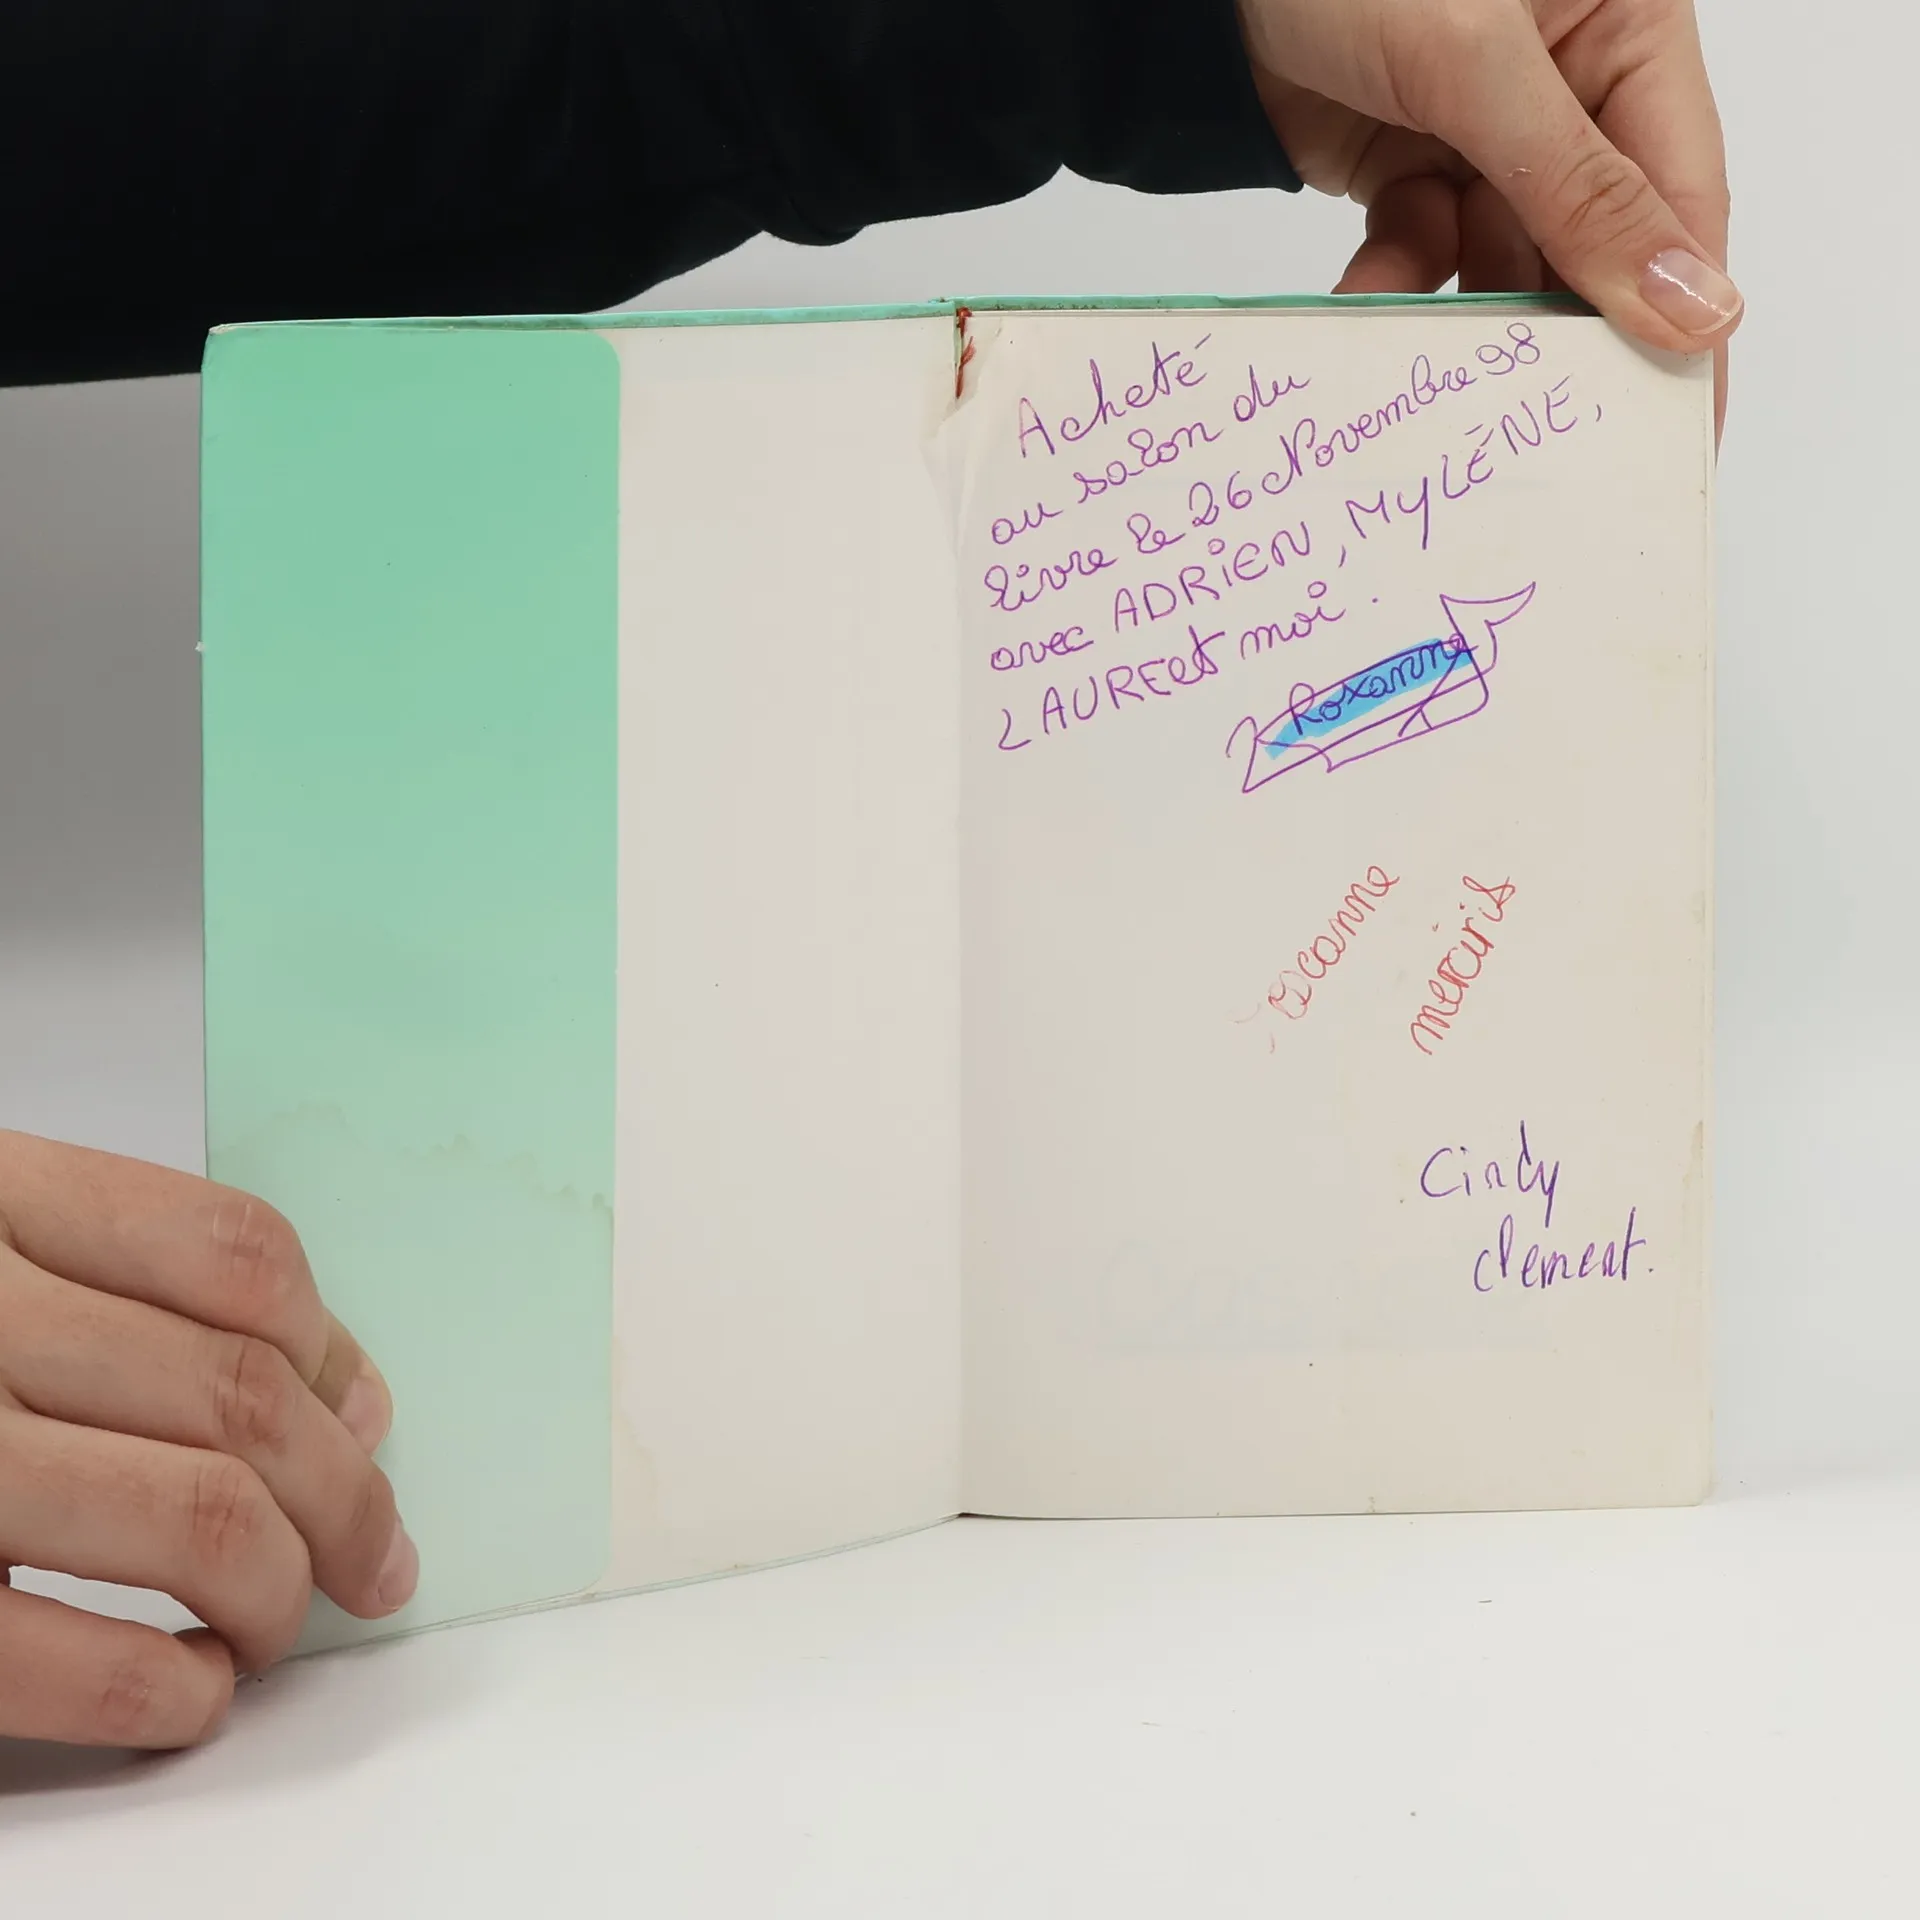 Acheté
au salon du
livre le 26 Novembre 98
avec ADRiEN, MyLÉNÉ,
LAURE et moi.
Roxanne
Cindy
clement.